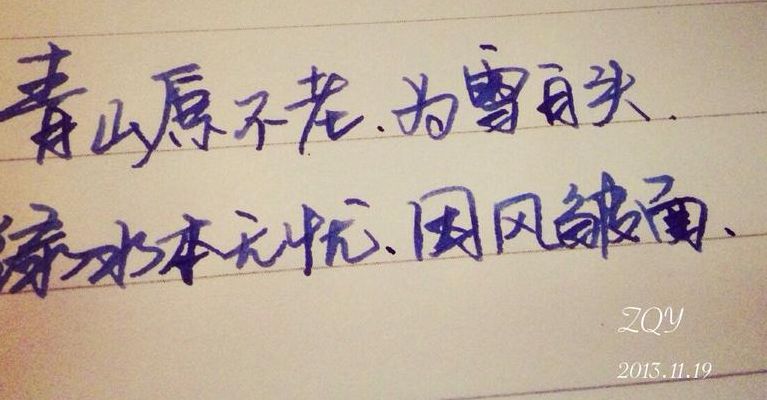 青山原不老、为雪白头.
绿水本无忧、因风皱面、
ZQY
2013.11.19